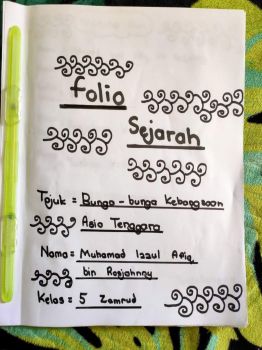 folio
Sejarah
Tajuk = Bunga - bunga kebangsaan
Asia Tenggara
Nama = Muhamad Izzul Afiq
bin
Kelas = 5 Zamrud